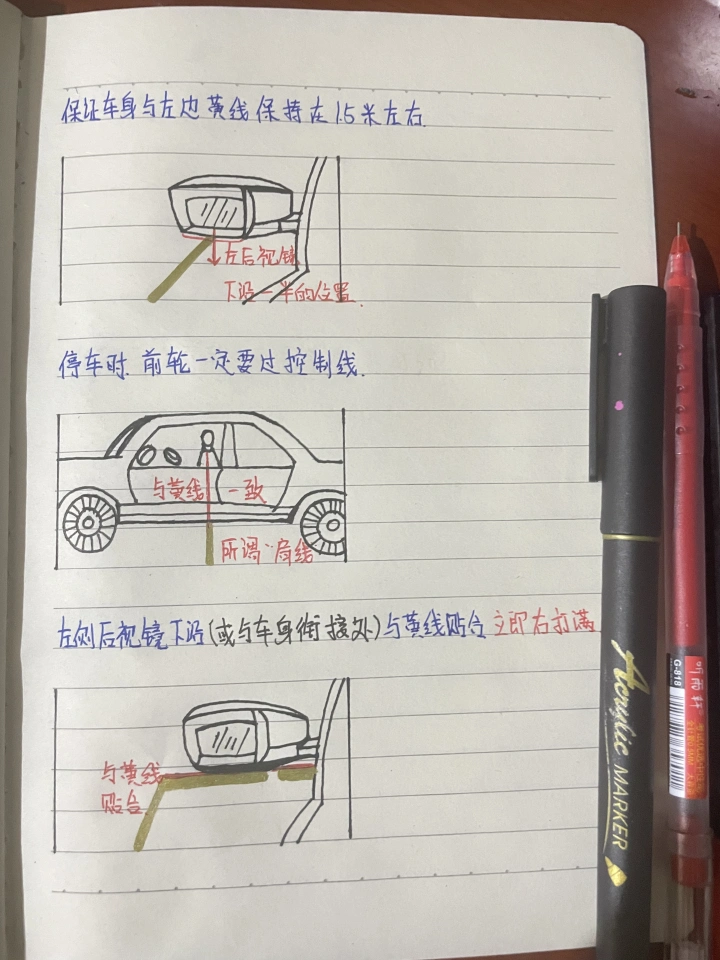 保证车身与左边黄线保持在1.5米左右
左后视镜
下沿一半的位置.
停车时.前轮一定要过控制线.
与黄线一致
所谓:肩线
左侧后视镜下沿(或与车身衔接处)与黄线贴合 立即右打满
与黄线
贴合.
Acrylic MARKER
听雨轩
G-818